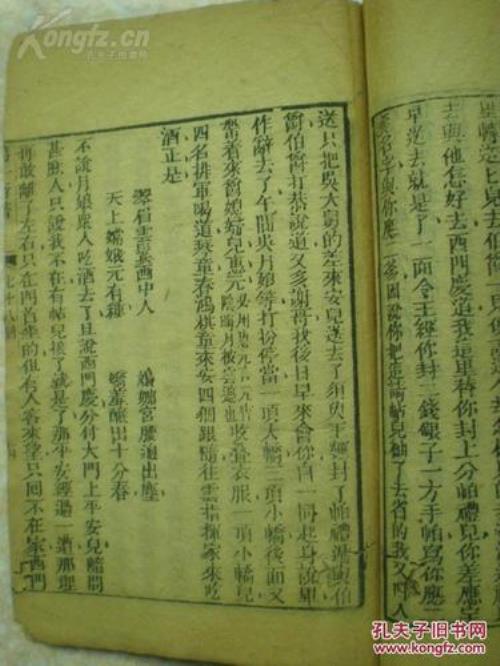 去與他怎好去西門慶道我這里替你封上分帕禮兒你差應
早送去就是了一面令王經你封二錢銀子一方手帕寫你應二
爹名字與你應二爹因說你把這請帖兒袖了去省的我又叫人
送只把吳大舅的差來安兒送去了須臾王經封了帕禮遞與伯
爵伯爵打恭說道又多謝哥我後日早來會你咱一同起身說畢
作辭去了午間吳月娘等打扮停當一頂大轎三頂小轎後面又
帶着來爵媳婦兒惠元收疊衣服一頂小轎兒
四名排軍喝道琴童春鴻棋童來安四個跟隨往雲指揮家來吃
酒正是
翠眉雲鬢畫中人 嬝娜宮腰迥出塵
天上嫦娥元有種 嬌羞釀出十分春
不說月娘衆人吃酒去了且說西門慶分付大門上平安兒隨問
甚麼人只說我不在有帖兒接了就是了那平安經過一遭那裡
再敢離了左右只在門首坐的但有人客來望只回不在家西門
Kongfz.cn
孔夫子旧书网
孔夫子旧书网
www.kongfz.cn